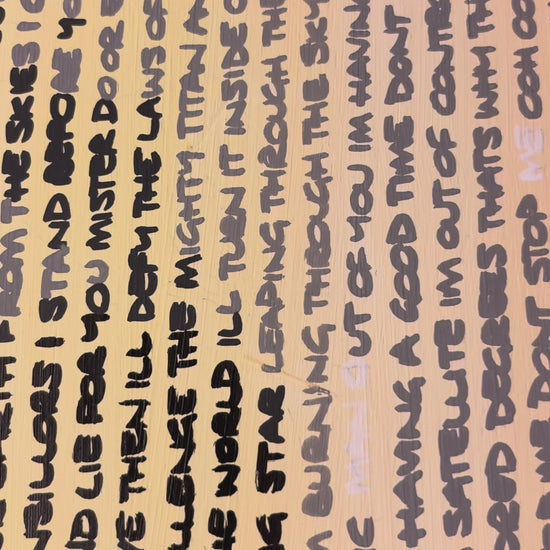 FROM THE SKIES I
I STAND BEFORE YO
ND LIE FOR YOU MISTER DO OR
THEN ILL DEFY THE LAWS OF
LLENGE THE MIGHTY TITAN A
E WORLD ILL TURN IT INSIDE O
G STAR LEAPING THROUGH THE
BURNING THROUGH THE SKY
UT OF YOU IM HAVING
HAVING A GOOD TIME DONT
SATELLITE IM OUT OF CONTRO
DRED DEGREES THATS WHY THE
DONT STOP ME OOH